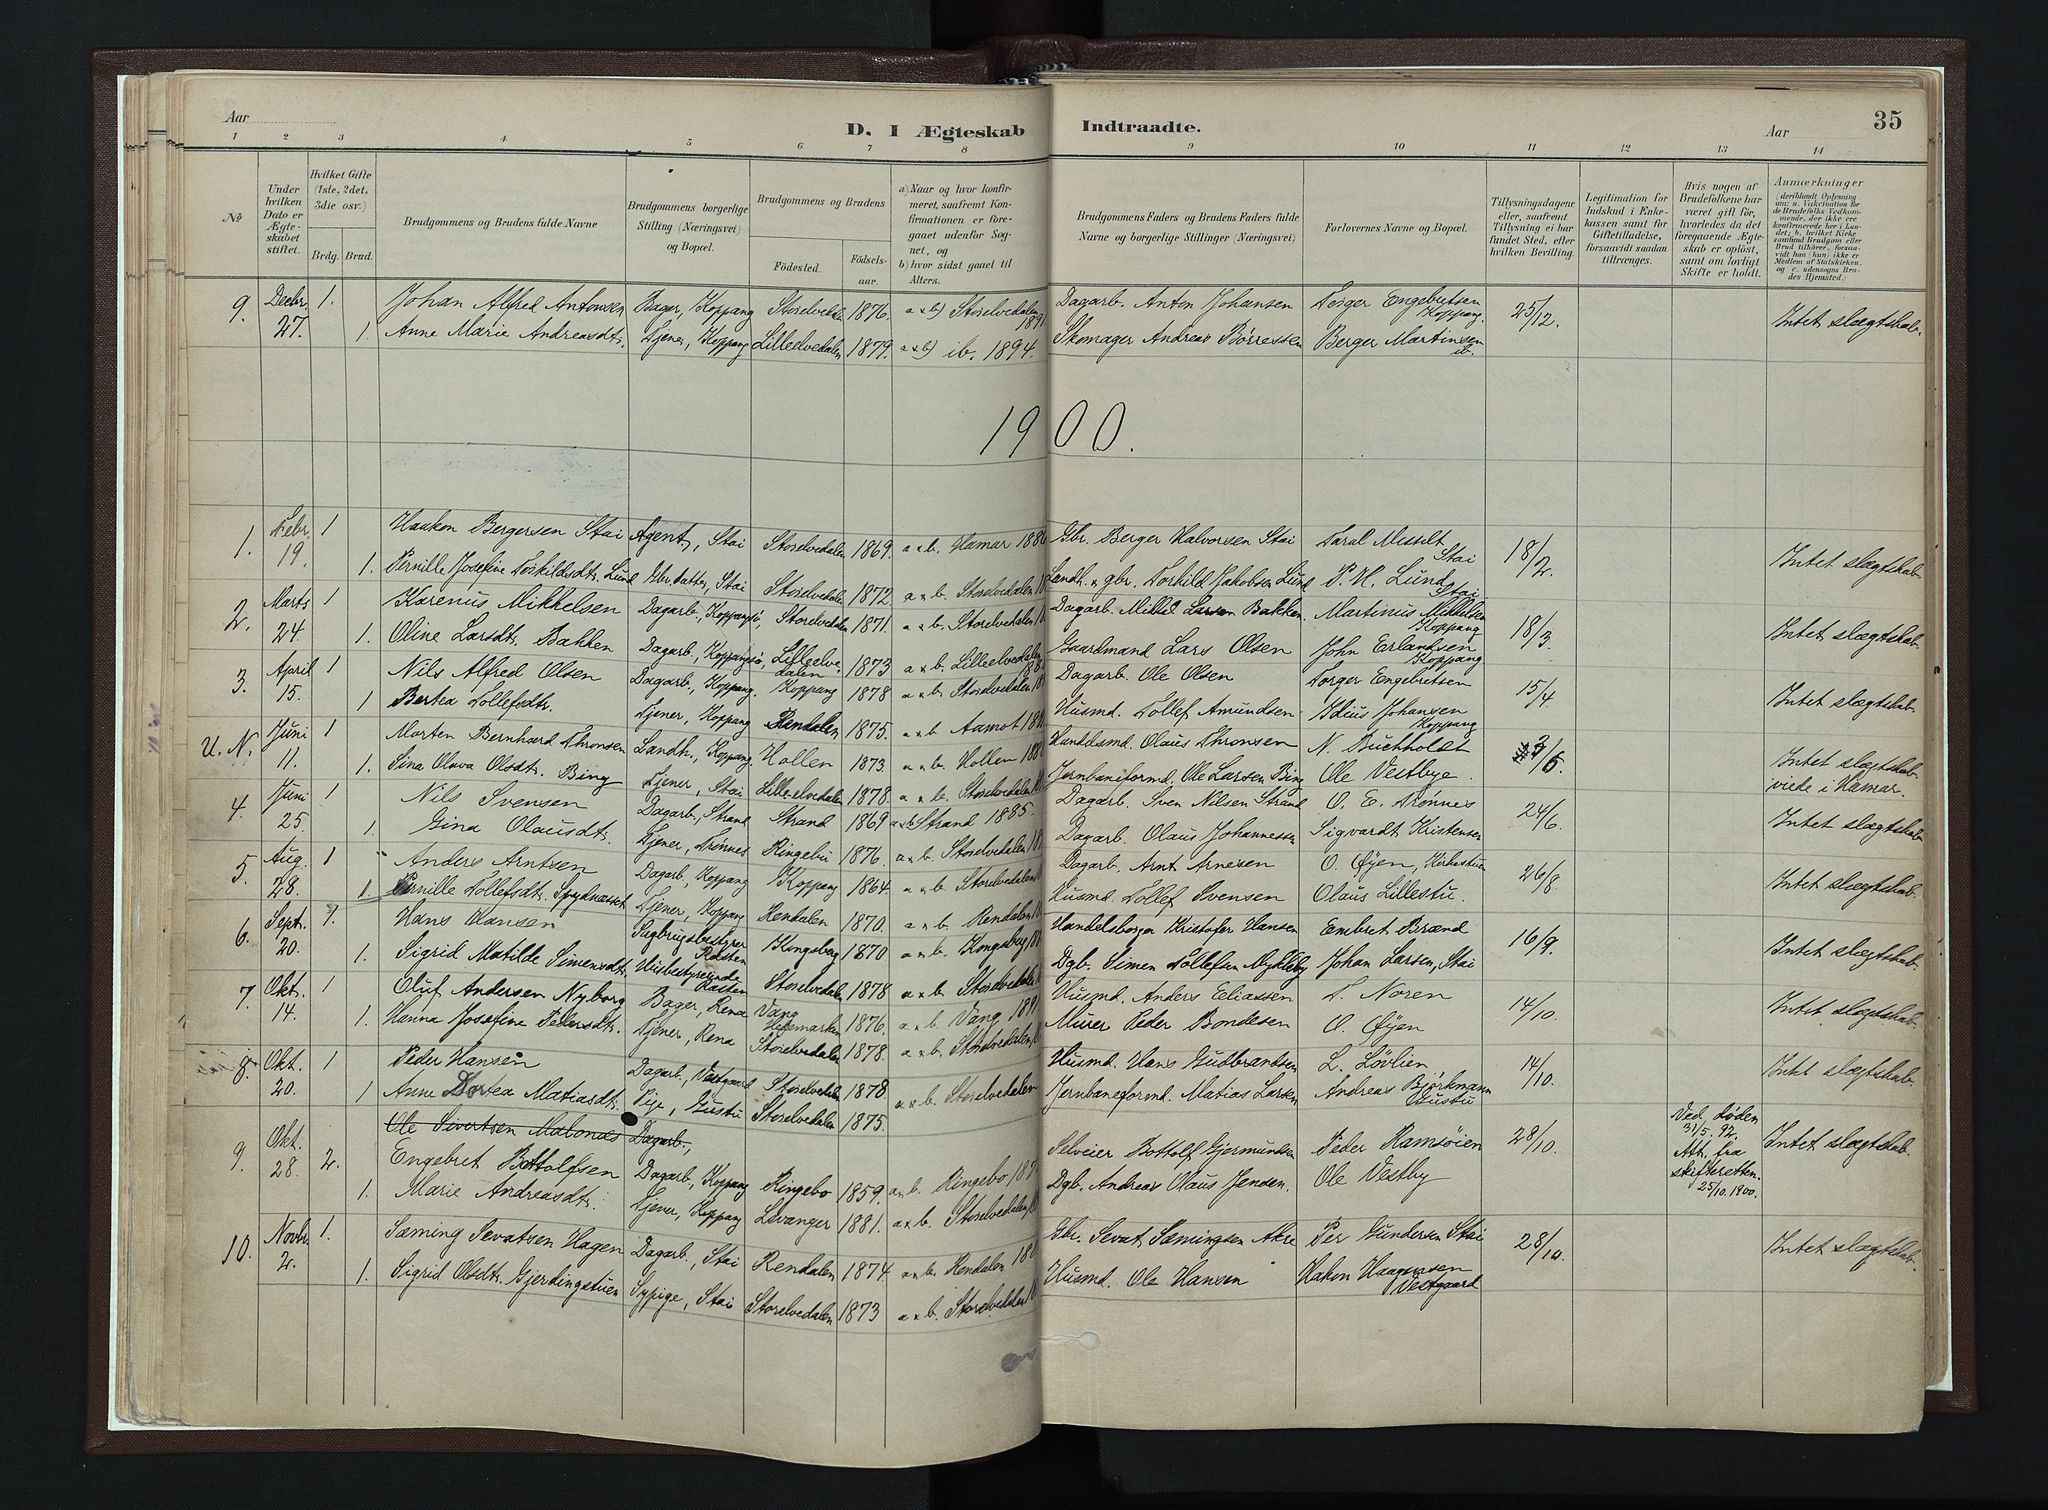 Aar
D. I Ægteskab
Indtraadte.
Aar
35
1 2 3 4 5 6 7 8 9 10 11 12 13 14
No
Under hvilken Dato er Ægteskabet stiftet.
Hvilket Gifte (1ste, 2det, 3die osv.)
Brdg. Brud.
Brudgommens og Brudens fulde Navne
Brudgommens borgerlige Stilling (Næringsvei) og Bopæl.
Brudgommens og Brudens
Födested.
Födselsaar.
a) Naar og hvor konfirmeret, saafremt Konfirmationen er foregaaet udenfor Sognet, og
b) hvor sidst gaaet til Alters.
Brudgommens Faders og Brudens Faders fulde Navne og borgerlige Stillinger (Næringsvei)
Forlovernes Navne og Bopæl.
Tillysningsdagene eller, saafremt Tillysning ei har fundet Sted, efter hvilken Bevilling.
Legitimation for Indskud i Enkekassen samt for Giftetilladelse, forsaavidt saadan tiltrænges.
Hvis nogen af Brudefolkene har været gift før, hvorledes da det foregaaende Ægteskab er oplöst, samt om lovligt Skifte er holdt.
Anmærkninger
(deriblandt Oplysning om: a. Vakcination for de Brudefolks Vedkommende, der ikke ere konfirmerede her i Landet; b. hvilket Kirkesamfund Brudgom eller Brud tilhører, forsaavidt han (hun) ikke er Medlem af Statskirken, og c. udensogns Brudes Hjemsted.)
9. Decbr 27. 1. Johan Alfred Antonsen Bager, Koppang Storelvedal 1876. a & b) Storelvedalen 1891 Dagarb. Anton Johansen Torger Engebretsen Koppang. 25/12. Intet slægtskab.
1. Anne Marie Andreasdt. Tjener, Koppang Lilleelvedalen 1879. a & b) ib. 1894. Skomager Andreas Børresen Berger Martinsen ib.
1900.
1. Febr. 19. 1 Haakon Bergersen Stai Agent, Stai Storelvedalen 1869. a & b. Hamar 1886 Gbr. Berger Halvorsen Stai Taral Misselt Stai 18/2. Intet slægtskab.
1. Pernille Josefine Torkildsdt. Lund Gbr.datter, Stai Storelvedalen 1872 a & b. Storelvedalen Landh. & gbr. Torkild Jakobsen Lund P. H. Lund Stai
2. Marts 24. 1 Karenus Mikkelsen Dagarb., Koppangsö, Storelvedalen 1871. a & b. Storelvedalen Dagarb. Mikkel Larsen Bakken. Martinus Mikkelsen Koppang 18/3. Intet slægtskab.
1. Oline Larsdt. Bakken Dagarb., Koppangsö, Lilleelvedalen 1873 a & b. Lilleelvedalen Gaardmand Lars Olsen John Erlandsen Koppang
3. April 15. 1 Nils Alfred Olsen Dagarb., Koppang. Koppang 1878 a & b. Storelvedalen Dagarb. Ole Olsen Torger Engebretsen 15/4 Intet slægtskab.
1 Bertea Tollefsdt. Tjener, Koppang Rendalen 1875. a & b. Aamot Husmd. Tollef Amundsen Idius Johansen Koppang
U. N. Juni 11. 1 Morten Bernhard Thronsen Landh., Koppang. Hollen 1873. a & b. Hollen Handelsmd. Olaus Thronsen N. Buchholdt Intet slægtskab. viede i Hamar.
1. Sina Olava Olsdt. Bing Tjener, Stai Lilleelvedalen 1878. a & b. Storelvedalen Jernbaneformd. Ole Larsen Bing Ole Vestbye.
4. Juni 25. 1 Nils Svensen Dagarb., Strand Strand 1869 a & b. Strand 1885. Dagarb. Sven Nilsen Strand O. E. Trønnes 24/6. Intet slægtskab.
1. Gina Olausdt. Tjener, Trönnes Ringebu 1876. a & b. Storelvedalen Dagarb. Olaus Johannesen Sigvardt Kristensen
5. Aug. 28. 1 Anders Arntsen Dagarb., Koppang Koppang 1864. a & b. Storelvedalen Dagarb. Arnt Arnesen O. Øyen, Kirkestuen 26/8. Intet slægtskab.
1. Pernille Tollefsdt. Spydnæsset Tjener, Koppang Rendalen 1870. a & b. Rendalen Husmd. Tollef Svensen Olaus Lillestu.
6. Sept. 20. 1. Hans Hansen Sagbrugsbestyrer Rasten Kongsberg 1870 a & b. Kongsberg Handelsborger Kristofer Hansen Embret Brænd 16/9. Intet slægtskab.
1. Sigrid Matilde Simensdt. Husbestyrerinde Rasten Storelvedalen 1878 a & b. Storelvedalen Dgb. Simen Tollefsen Mykleby Johan Larsen, Stai
7. Okt. 14. 1 Oluf Andersen Nyborg Bager, Rena Vang Hedemarken 1876. a & b. Vang Husmd. Anders Eliassen T. Noren 14/10. Intet slægtskab.
1. Hanna Josefine Pedersdt. Tjener, Rena Storelvedalen 1878. a & b. Storelvedalen Murer Peder Bondesen O. Øyen
8. Okt. 20. 1 Peder Hansen Dagarb., Vestgaard Storelvedalen 1878. a & b. Storelvedalen Husmd. Hans Gudbrandsen L. Lövlien 14/10. Intet slægtskab.
1 Anne Dortea Matiasdt. Pige, Gustu Storelvedalen 1875. Jernbaneformd. Matias Larsen Andreas Björkmann Gustu
Ole Sivertsen Malonæs Dagarb.,
9. Okt. 28. 2. Engebret Bottolfsen Dagarb., Koppang Ringebo 1859. a & b. Ringebo Selveier Bottolf Gjermundsen Peder Ramsöien 28/10. Ved døden 31/5.92. Att. fra skifteretten 25/10.1900. Intet slægtskab.
1. Marie Andreasdt. Tjener, Koppang Levanger 1881. a & b. Storelvedalen Dgb. Andreas Olaus Jensen. Ole Vestby
10. Novbr. 2. 1. Sæming Sevatsen Hagen Dagarb., Stai Rendalen 1874 a & b. Rendalen Gbr. Sevat Sæmingsen Akre Per Gundersen Stai 28/10. Intet slægtskab.
1. Sigrid Olsdt. Gjerdingstuen Sypige, Stai Storelvedalen 1873 a & b. Storelvedalen Husmd. Ole Hansen Hakon Haagensen Vestgaard